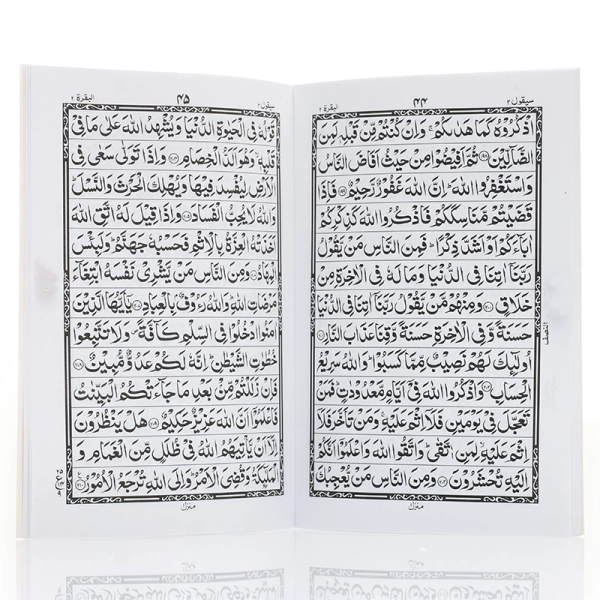 سيقول ٢ ٤٤ البقرة ٢
اذْكُرُوْهُ كَمَا هَدٰىكُمْ ۚ وَاِنْ كُنْتُمْ مِّنْ قَبْلِهٖ لَمِنَ
الضَّآلِّيْنَ ۝۱۹۸ ثُمَّ اَفِيْضُوْا مِنْ حَيْثُ اَفَاضَ النَّاسُ
وَاسْتَغْفِرُوا اللّٰهَ ؕ اِنَّ اللّٰهَ غَفُوْرٌ رَّحِيْمٌ ۝۱۹۹ فَاِذَا
قَضَيْتُمْ مَّنَاسِكَكُمْ فَاذْكُرُوا اللّٰهَ كَذِكْرِكُمْ
اٰبَآءَكُمْ اَوْ اَشَدَّ ذِكْرًا ؕ فَمِنَ النَّاسِ مَنْ يَّقُوْلُ
رَبَّنَآ اٰتِنَا فِى الدُّنْيَا وَمَا لَهٗ فِى الْاٰخِرَةِ مِنْ
خَلَاقٍ ۝۲۰۰ وَمِنْهُمْ مَّنْ يَّقُوْلُ رَبَّنَآ اٰتِنَا فِى الدُّنْيَا
حَسَنَةً وَّفِى الْاٰخِرَةِ حَسَنَةً وَّقِنَا عَذَابَ النَّارِ ۝۲۰۱
اُولٰٓئِكَ لَهُمْ نَصِيْبٌ مِّمَّا كَسَبُوْا ؕ وَاللّٰهُ سَرِيْعُ
الْحِسَابِ ۝۲۰۲ وَاذْكُرُوا اللّٰهَ فِىْٓ اَيَّامٍ مَّعْدُوْدٰتٍ ؕ فَمَنْ
تَعَجَّلَ فِىْ يَوْمَيْنِ فَلَآ اِثْمَ عَلَيْهِ ۚ وَمَنْ تَاَخَّرَ فَلَآ
اِثْمَ عَلَيْهِ ۙ لِمَنِ اتَّقٰى ؕ وَاتَّقُوا اللّٰهَ وَاعْلَمُوْٓا اَنَّكُمْ
اِلَيْهِ تُحْشَرُوْنَ ۝۲۰۳ وَمِنَ النَّاسِ مَنْ يُّعْجِبُكَ
النصف
منزل
سيقول ٢ ٤٥ البقرة ٢
قَوْلُهٗ فِى الْحَيٰوةِ الدُّنْيَا وَيُشْهِدُ اللّٰهَ عَلٰى مَا فِىْ
قَلْبِهٖ ۙ وَهُوَ اَلَدُّ الْخِصَامِ ۝۲۰۴ وَاِذَا تَوَلّٰى سَعٰى فِى
الْاَرْضِ لِيُفْسِدَ فِيْهَا وَيُهْلِكَ الْحَرْثَ وَالنَّسْلَ ؕ
وَاللّٰهُ لَا يُحِبُّ الْفَسَادَ ۝۲۰۵ وَاِذَا قِيْلَ لَهُ اتَّقِ اللّٰهَ
اَخَذَتْهُ الْعِزَّةُ بِالْاِثْمِ فَحَسْبُهٗ جَهَنَّمُ ؕ وَلَبِئْسَ
الْمِهَادُ ۝۲۰۶ وَمِنَ النَّاسِ مَنْ يَّشْرِىْ نَفْسَهُ ابْتِغَآءَ
مَرْضَاتِ اللّٰهِ ؕ وَاللّٰهُ رَءُوْفٌۢ بِالْعِبَادِ ۝۲۰۷ يٰٓاَيُّهَا الَّذِيْنَ
اٰمَنُوا ادْخُلُوْا فِى السِّلْمِ كَآفَّةً ۪ وَلَا تَتَّبِعُوْا
خُطُوٰتِ الشَّيْطٰنِ ؕ اِنَّهٗ لَكُمْ عَدُوٌّ مُّبِيْنٌ ۝۲۰۸
فَاِنْ زَلَلْتُمْ مِّنْۢ بَعْدِ مَا جَآءَتْكُمُ الْبَيِّنٰتُ
فَاعْلَمُوْٓا اَنَّ اللّٰهَ عَزِيْزٌ حَكِيْمٌ ۝۲۰۹ هَلْ يَنْظُرُوْنَ
اِلَّآ اَنْ يَّاْتِيَهُمُ اللّٰهُ فِىْ ظُلَلٍ مِّنَ الْغَمَامِ وَ
الْمَلٰٓئِكَةُ وَقُضِىَ الْاَمْرُ ؕ وَاِلَى اللّٰهِ تُرْجَعُ الْاُمُوْرُ ۝۲۱۰
منزل